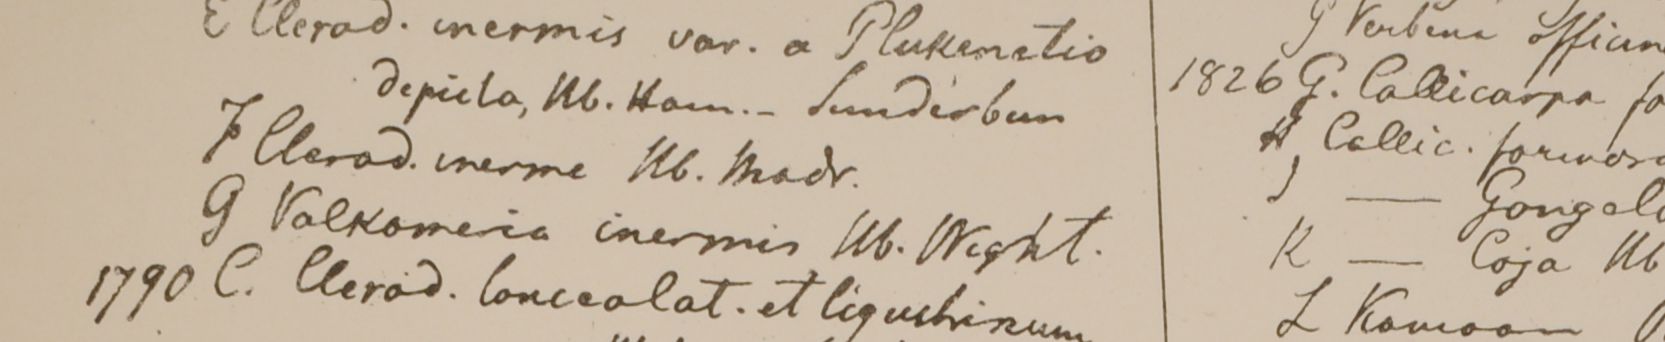 E Clerod. inermis var. a Plukenetio
depicta, Hb. Ham. - Sunderbun
F Clerod. inerme Hb. Madr.
G Volkameria inermis Hb. Wight.
1790 C. Clerod. lanceolat. et ligustrinum
Verbena officin
1826 G. Callicarpa fo
H Callic. formosa
J — Gongola
K — Coja Hb
L Kamoon